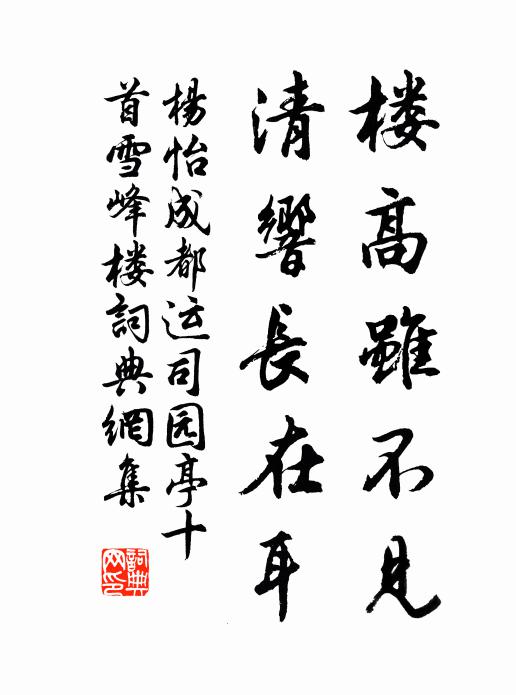 楼高雖不见
清響長在耳
楊怡成都运司园亭十
首雪峰楼詞典網集
詞典網印